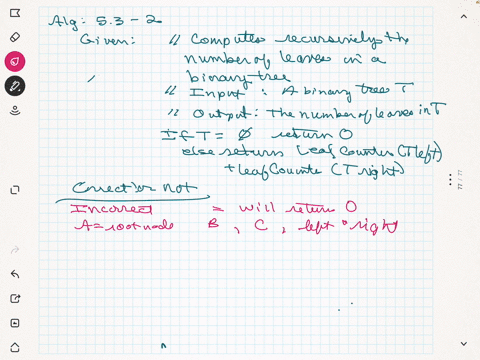 Alg: 5.3-2
Given: // Computes recursively the
number of leaves in a
binary tree
// Input: A binary tree T
// Output: The number of leaves in T
If T = ∅ return 0
else return Leaf Counter (T left)
+ leaf Counter (T right)
Correct or not
Incorrect = will return 0
A = root node B, C, left & right